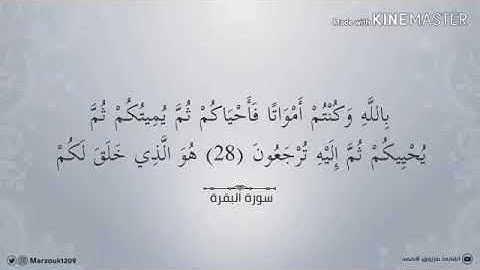 Made with KINEMASTER
بِاللَّهِ وَكُنْتُمْ أَمْوَاتًا فَأَحْيَاكُمْ ثُمَّ يُمِيتُكُمْ ثُمَّ
يُحْيِيكُمْ ثُمَّ إِلَيْهِ تُرْجَعُونَ (28) هُوَ الَّذِي خَلَقَ لَكُمْ
سورة البقرة
Marzouk1209